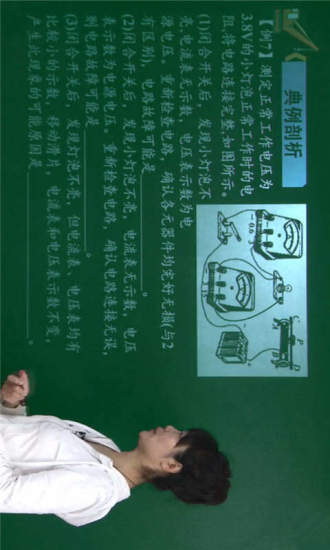 典例剖析
【例7】测定正常工作电压为
3.8V的小灯泡正常工作时的电
阻,将电路连接完整,如图所示。
(1)闭合开关后,发现小灯泡不
亮,电流表无示数、电压表示数为电
源电压。重新检查电路,确认各元器件均完好无损(与2
有区别),电路故障可能是________。
(2)闭合开关后,发现小灯泡不亮,电流表无示数,电压
表示数为电源电压。重新检查电路,确认电路连接无误,
则电路故障可能是________。
(3)闭合开关后,发现灯泡不亮,但电流表、电压表均有
比较小的示数,移动滑片,电流表和电压表示数不变,
产生此现象的可能原因是________。
-0.6 3
P